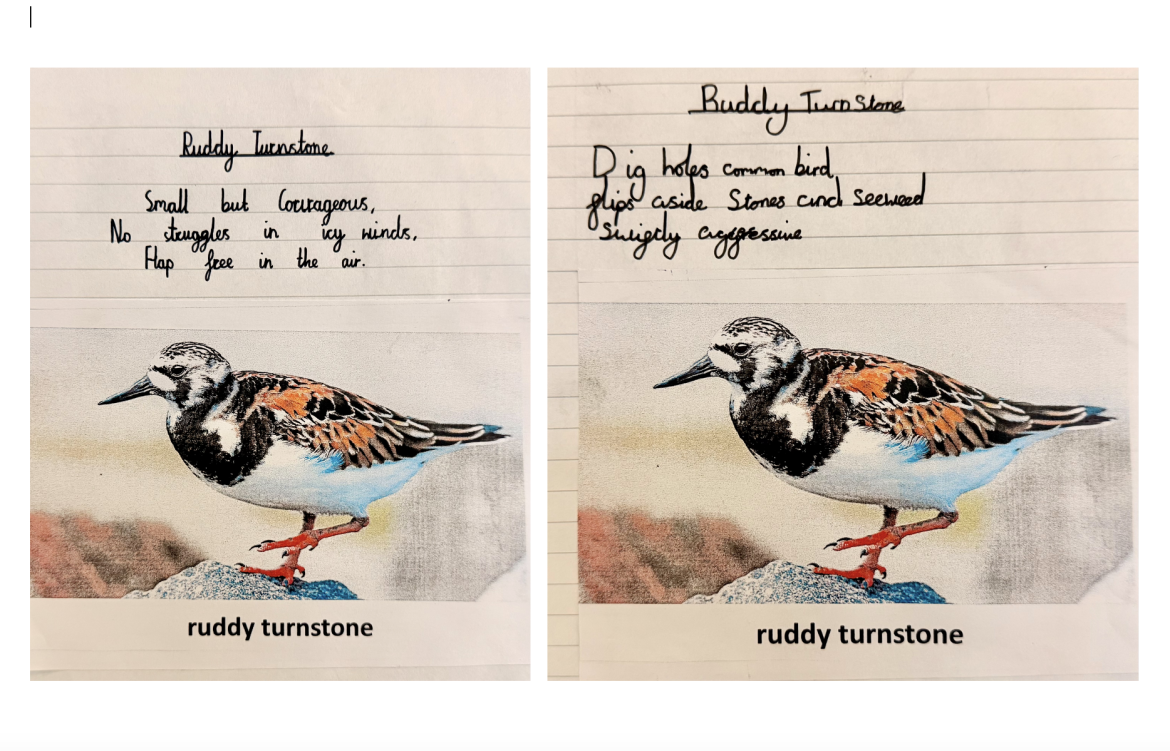 Ruddy Turnstone
Small but Courageous,
No struggles in icy winds,
Flap free in the air.
ruddy turnstone
Ruddy TurnStone
Dig holes common bird,
flips aside Stones and Seeweed
aggressive
ruddy turnstone